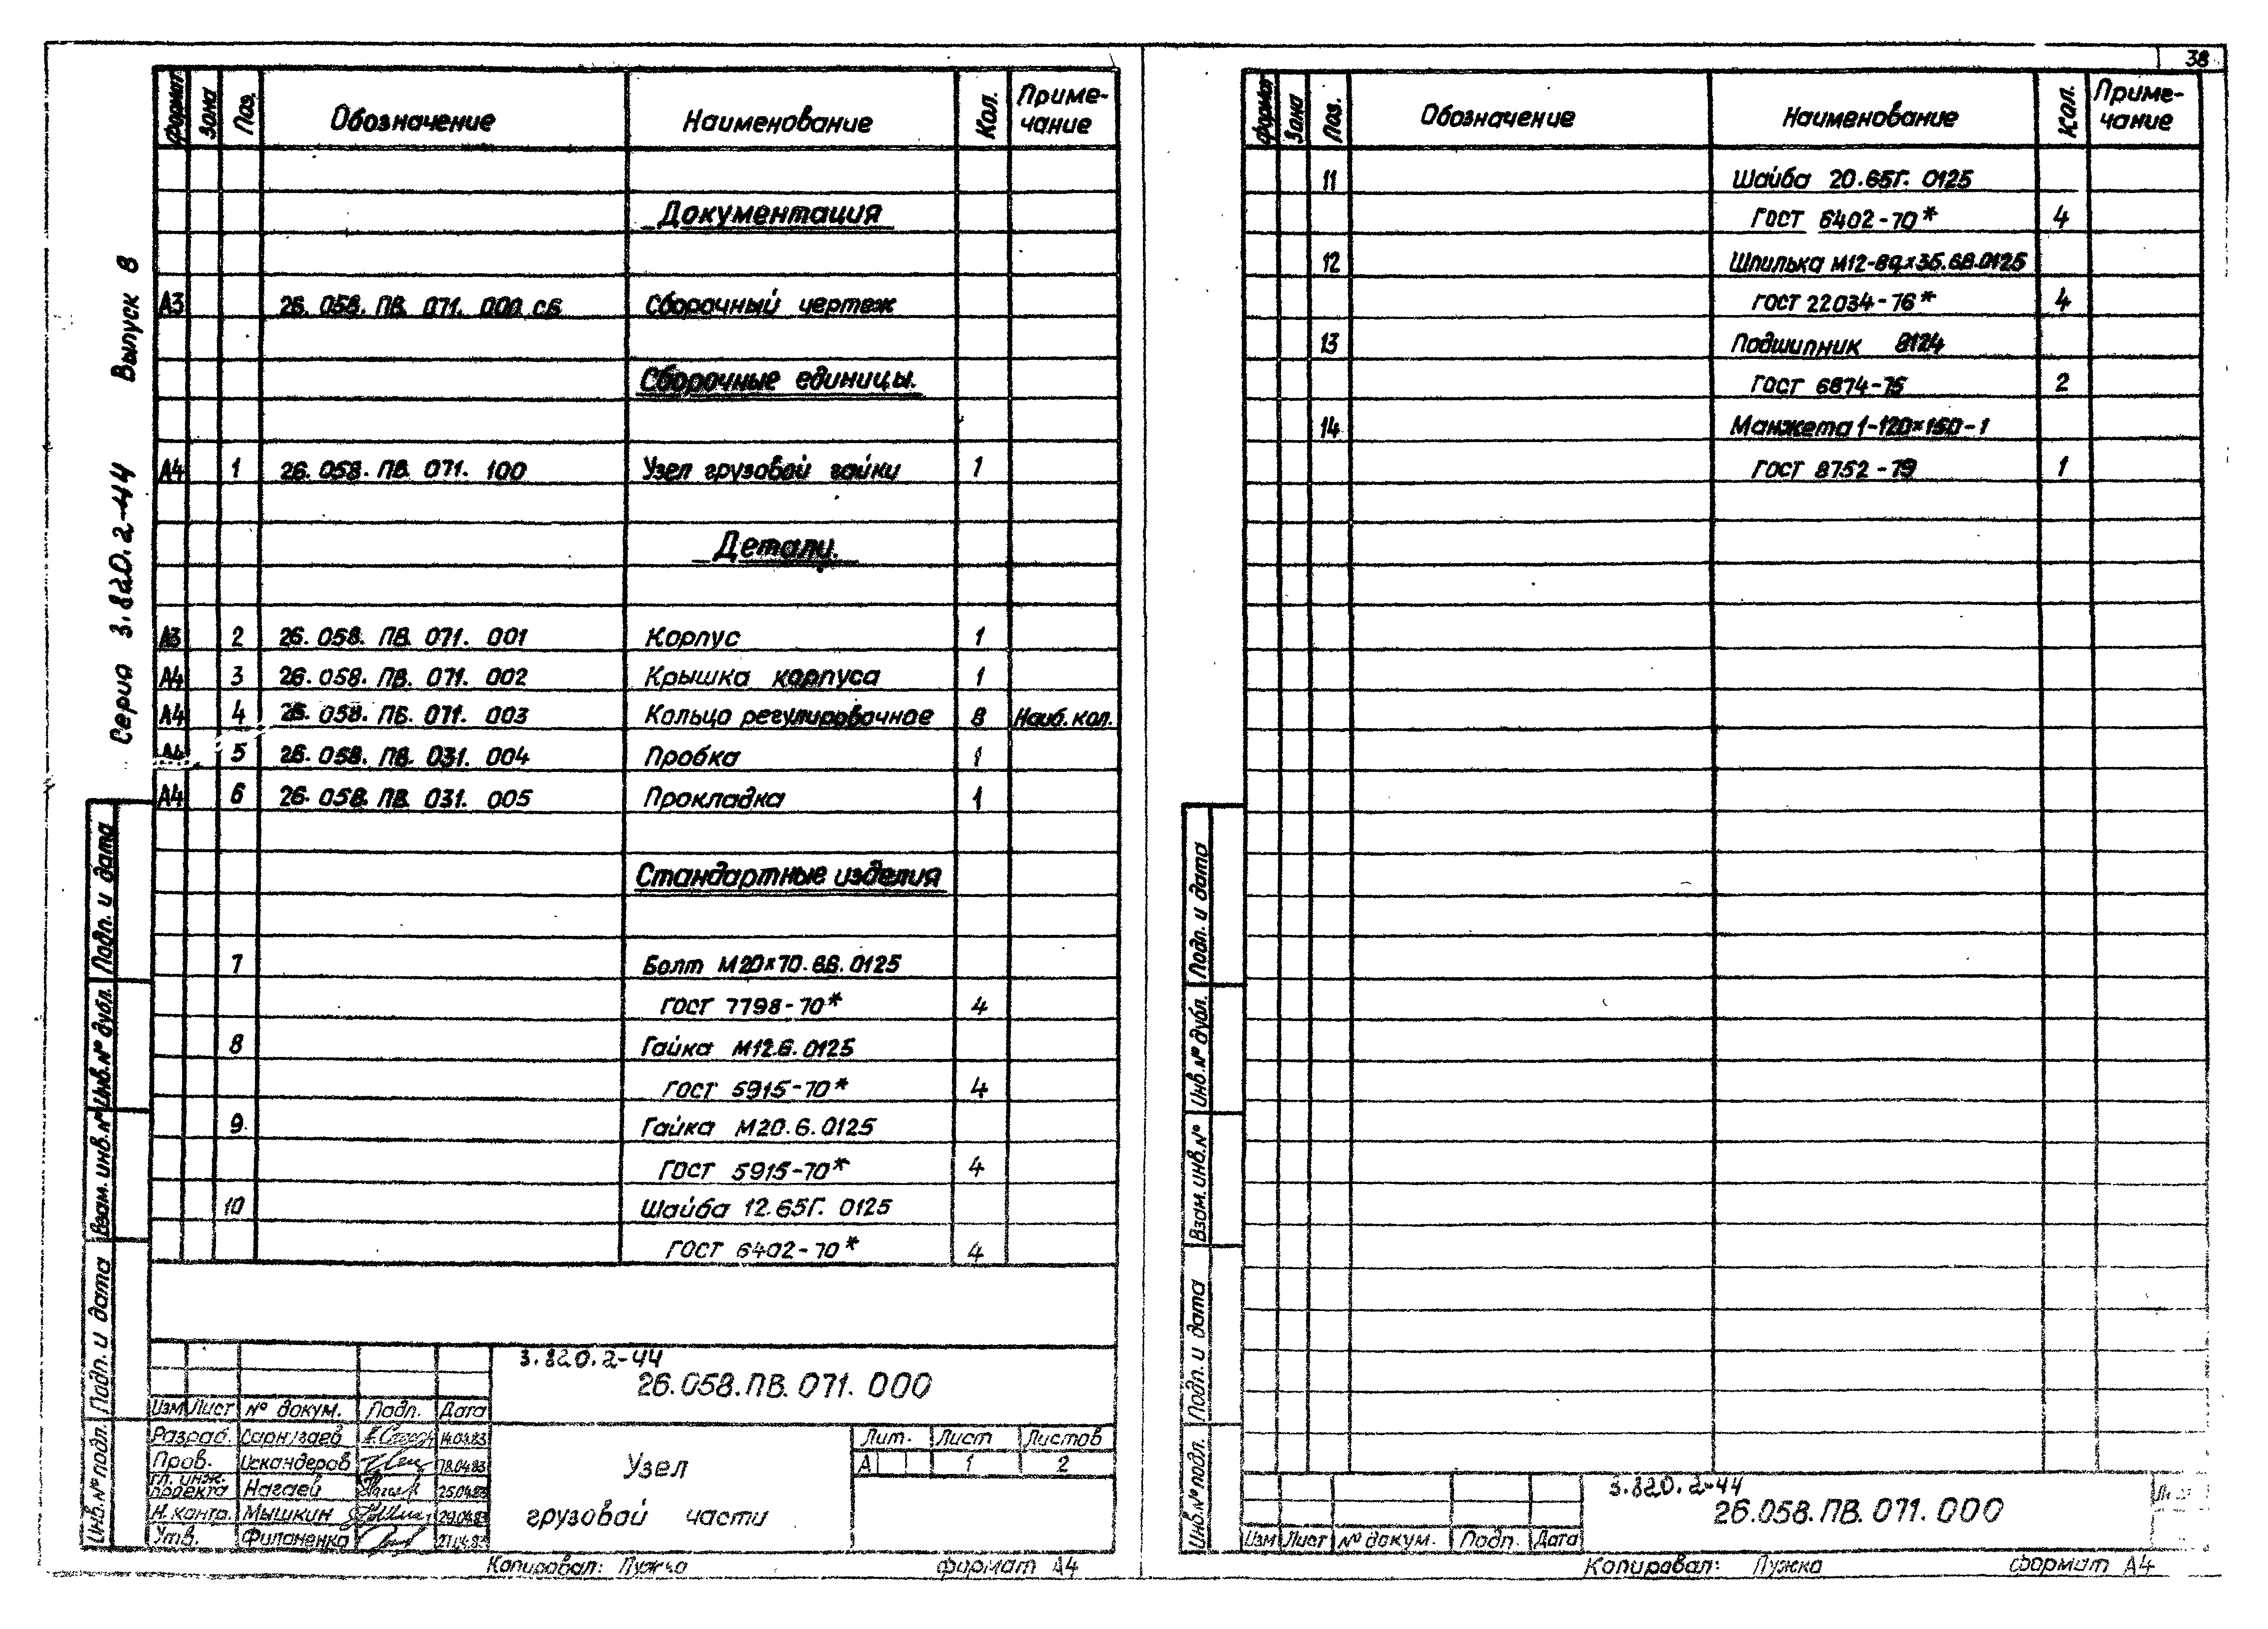 38
Серия 3.820.2-44 Выпуск 8
Формат Зона Поз. Обозначение Наименование Кол. Приме-
чание
Документация
А3 26.058.ПВ.071.000 СБ Сборочный чертеж
Сборочные единицы.
А4 1 26.058.ПВ.071.100 Узел грузовой гайки 1
Детали.
А3 2 26.058.ПВ.071.001 Корпус 1
А4 3 26.058.ПВ.071.002 Крышка корпуса 1
А4 4 26.058.ПВ.071.003 Кольцо регулировочное 8 Наиб. кол.
А4 5 26.058.ПВ.031.004 Пробка 1
А4 6 26.058.ПВ.031.005 Прокладка 1
Стандартные изделия
7 Болт М20×70.66.0125
ГОСТ 7798-70* 4
8 Гайка М12.6.0125
ГОСТ 5915-70* 4
9 Гайка М20.6.0125
ГОСТ 5915-70* 4
10 Шайба 12.65Г.0125
ГОСТ 6402-70* 4
Подп. и дата
Инв.№ дубл.
Взам. инв.№
Подп. и дата
Инв.№ подл.
3.820.2-44
26.058.ПВ.071.000
Изм Лист № докум. Подп. Дата
Разраб. 14.04.83
Пров. Искандеров 18.04.83
Гл. инж.
проекта Нагаев 25.04.83
Н.контр. Мышкин
Утв. Филоненко
Узел
грузовой части
Лит. Лист Листов
А 1 2
Копировал: Пужко формат А4
Формат Зона Поз. Обозначение Наименование Кол. Приме-
чание
11 Шайба 20.65Г.0125
ГОСТ 6402-70* 4
12 Шпилька М12-6g×35.66.0125
ГОСТ 22034-76* 4
13 Подшипник 8124
ГОСТ 6874-75 2
14 Манжета 1-120×150-1
ГОСТ 8752-79 1
Подп. и дата
Инв.№ дубл.
Взам. инв.№
Подп. и дата
Инв.№ подл.
3.820.2-44
26.058.ПВ.071.000
Изм Лист № докум. Подп. Дата
Копировал: Пужко формат А4